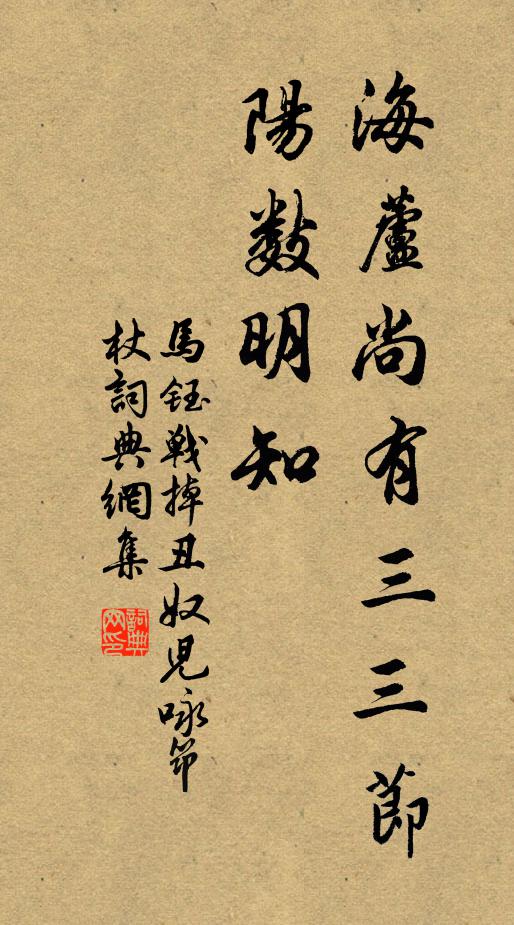 海蘆尚有三三節
陽数明知
馬鈺戰掉丑奴兒咏節
杖詞典網集
詞典网印